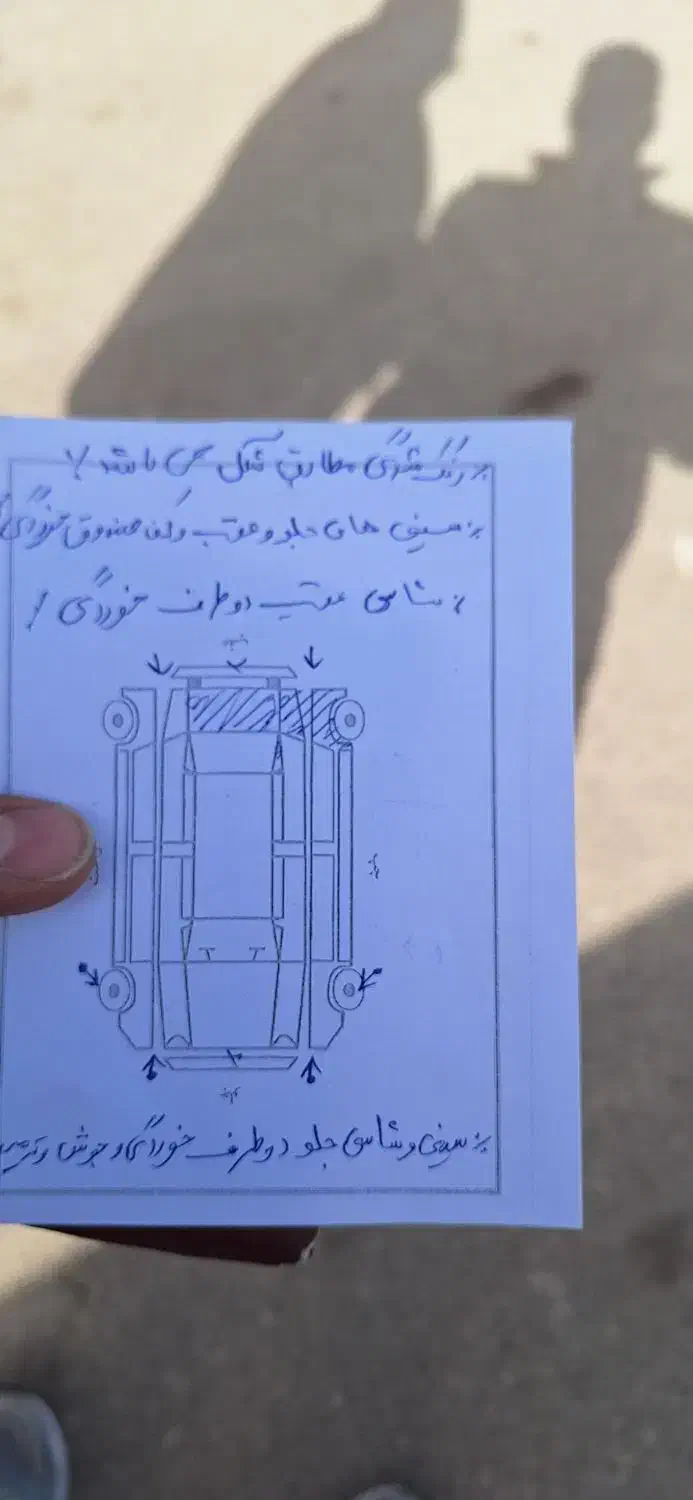 رنگ شدگی مطابق شکل می باشد
سینی های جلو و عقب و کف صندوق خوردگی
شاسی عقب دو طرف خوردگی
عقب
جلو
سینی و شاسی جلو دو طرف خوردگی و جوش و ترمیم